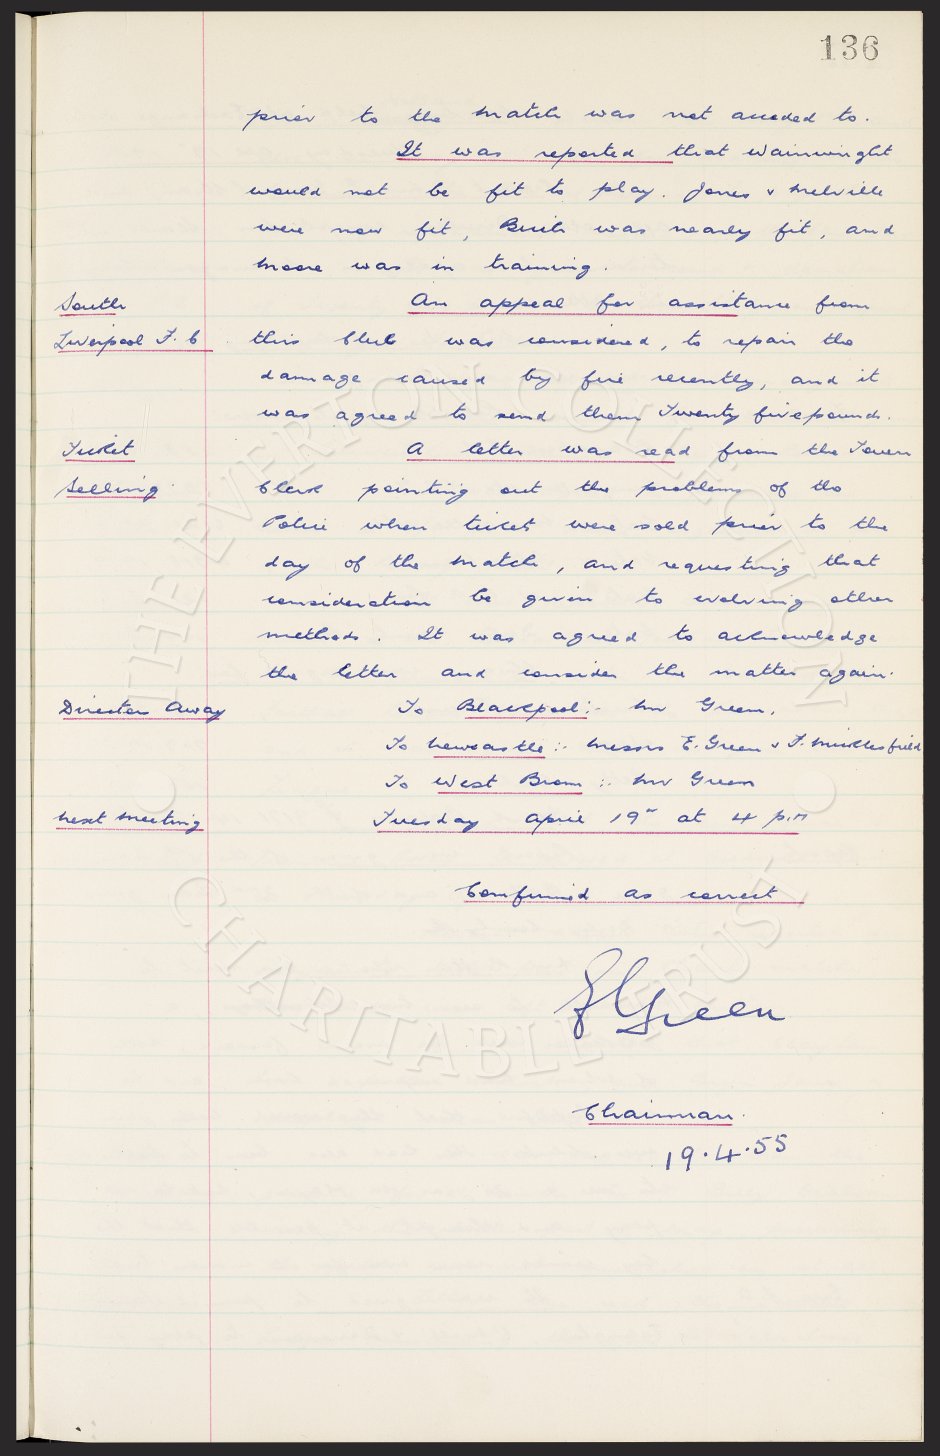 136
prior to the match was not acceded to.
It was reported that Wainwright
would not be fit to play. Jones & Melville
were now fit, Birch was nearly fit, and
Moore was in training.
South An appeal for assistance from
Liverpool F.C this Club was considered, to repair the
damage caused by fire recently, and it
was agreed to send them Twenty five pounds.
Ticket A letter was read from the Town
Selling. Clerk pointing out the problems of the
Police when tickets were sold prior to the
day of the match, and requesting that
consideration be given to evolving other
methods. It was agreed to acknowledge
the letter and consider the matter again.
Directors Away To Blackpool:- Mr Green.
To Newcastle:- Messrs E. Green & F. Micklesfield
To West Brom:- Mr Green
Next Meeting Tuesday April 19th at 4 p.m
Confirmed as correct
Green
Chairman.
19.4.55
THE EVERTON COLLECTION
CHARITABLE TRUST